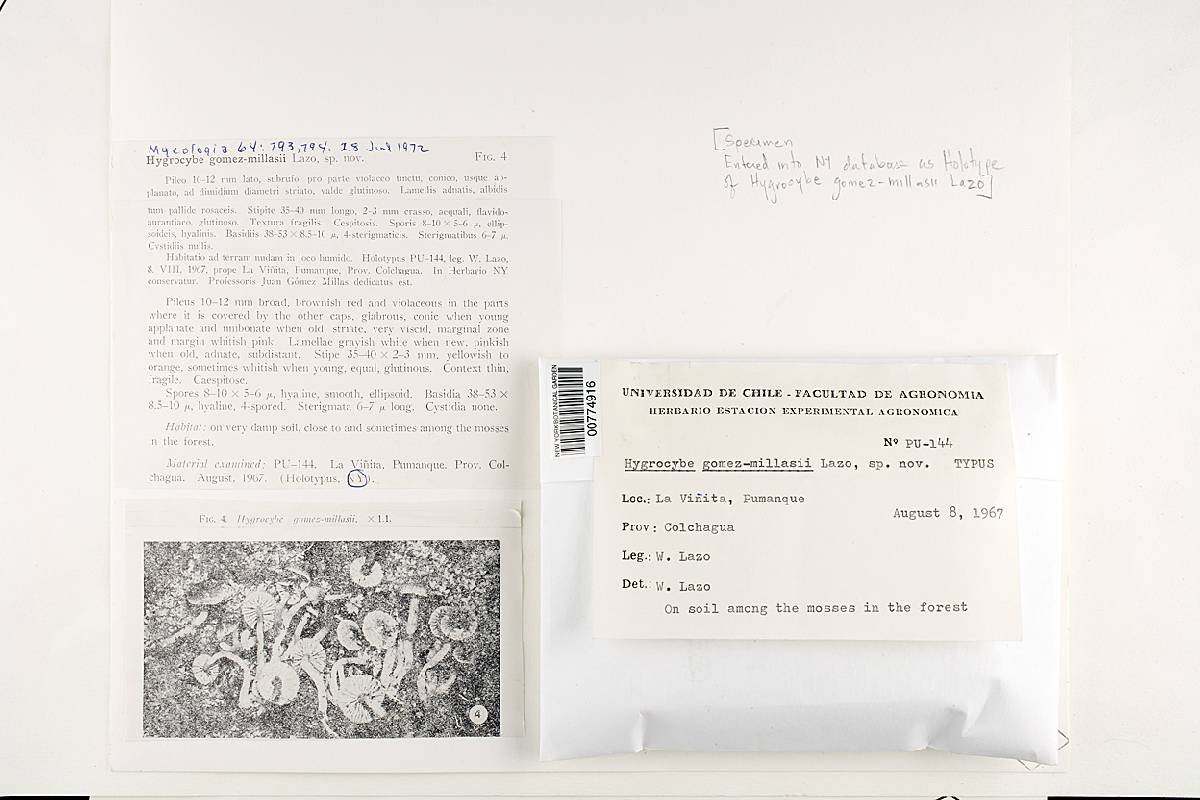 Mycologia 64: 793, 794. 28 Jul 1972
Hygrocybe gomez-millasii Lazo, sp. nov. FIG. 4
Pileo 10–12 mm lato, subrufo pro parte violaceo tinctu, conico, usque ap-
planato, ad dimidium diametri striato, valde glutinoso. Lamellis adnatis, albidis
tum pallide rosaceis. Stipite 35–40 mm longo, 2–3 mm crasso, aequali, flavido-
aurantiaco, glutinoso. Textura fragilis. Cespitosis. Sporis 8–10 × 5–6 μ, ellip-
soideis, hyalinis. Basidiis 38–53 × 8.5–10 μ, 4-sterigmaticis. Sterigmatibus 6–7 μ.
Cystidiis nullis.
Habitatio ad terram nudam in loco humido. Holotypus PU-144, leg. W. Lazo,
8. VIII. 1967, prope La Viñita, Pumanque, Prov. Colchagua. In Herbario NY
conservatur. Professoris Juan Gómez Millas dedicatus est.
Pileus 10–12 mm broad, brownish red and violaceous in the parts
where it is covered by the other caps, glabrous, conic when young
applanate and umbonate when old striate, very viscid, marginal zone
and margin whitish pink. Lamellae grayish white when new, pinkish
when old, adnate, subdistant. Stipe 35–40 × 2–3 mm, yellowish to
orange, sometimes whitish when young, equal, glutinous. Context thin,
fragile. Caespitose.
Spores 8–10 × 5–6 μ, hyaline, smooth, ellipsoid. Basidia 38–53 ×
8.5–10 μ, hyaline, 4-spored. Sterigmata 6–7 μ long. Cystidia none.
Habitat: on very damp soil, close to and sometimes among the mosses
in the forest.
Material examined: PU-144. La Viñita, Pumanque, Prov. Col-
chagua. August, 1967. (Holotypus, NY).
FIG. 4. Hygrocybe gomez-millasii, ×1.1.
4
[Specimen
Entered into NY database as Holotype
of Hygrocybe gomez-millasii Lazo]
NEW YORK BOTANICAL GARDEN
00774916
UNIVERSIDAD DE CHILE - FACULTAD DE AGRONOMIA
HERBARIO ESTACION EXPERIMENTAL AGRONOMICA
Nº PU-144
Hygrocybe gomez-millasii Lazo, sp. nov. TYPUS
Loc.: La Viñita, Pumanque
August 8, 1967
Prov: Colchagua
Leg.: W. Lazo
Det. W. Lazo
On soil among the mosses in the forest